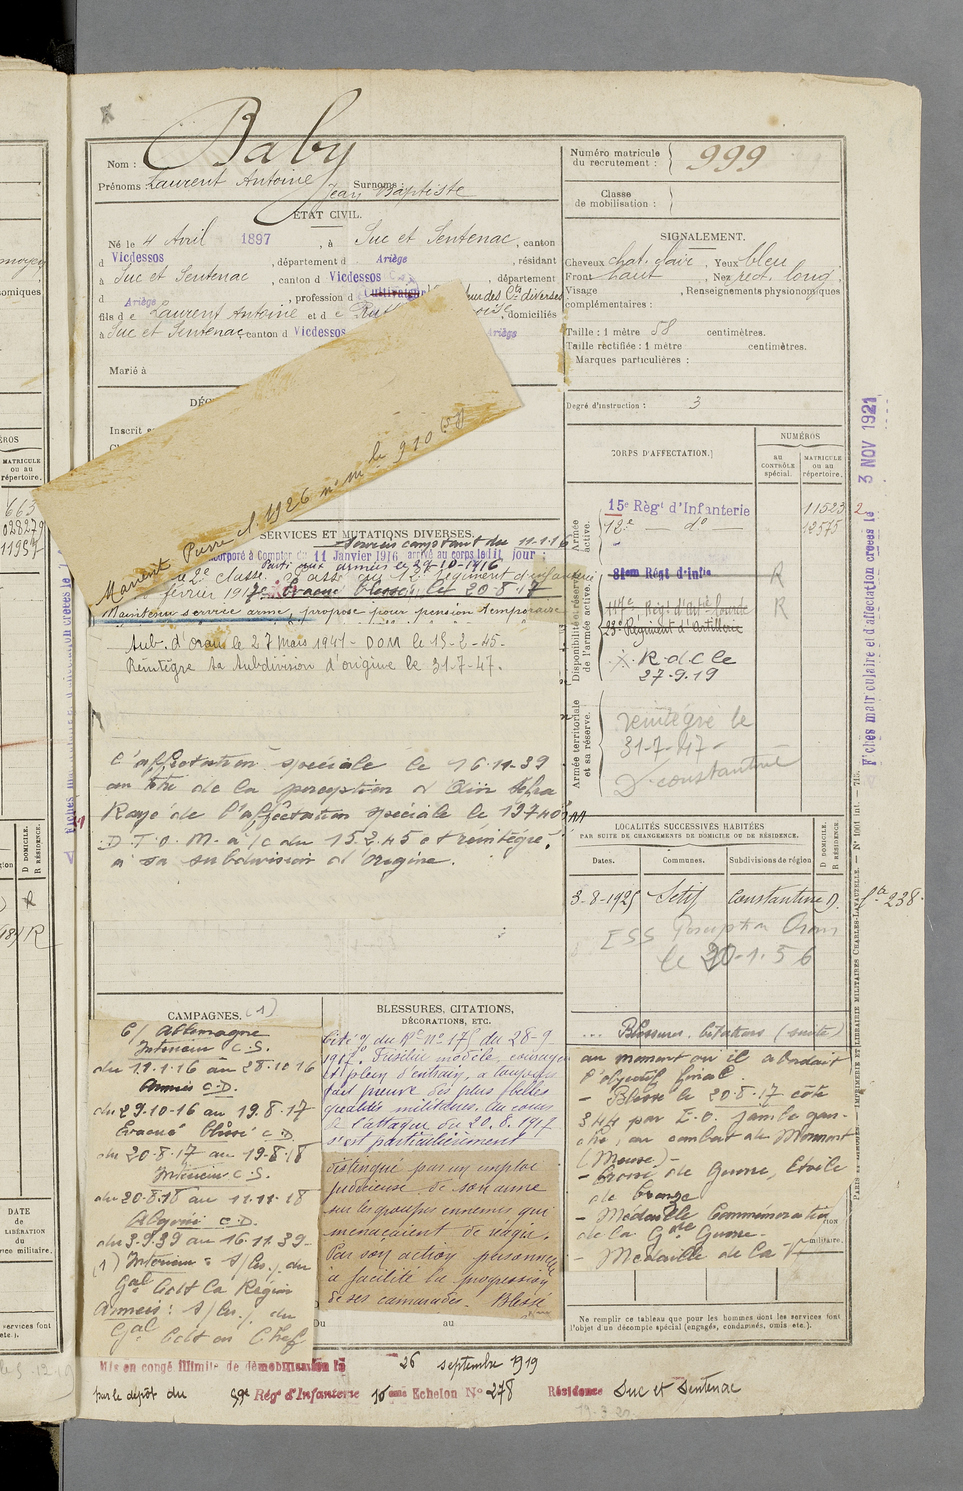 Baby
Nom :
Prénoms : Laurent Antoine Surnoms :
Jean Baptiste
Numéro matricule
du recrutement : 999
Classe
de mobilisation :
ÉTAT CIVIL.
Né le 4 Avril 1897, à Suc et Sentenac, canton
d Vicdessos, département d Ariège, résidant
à Suc et Sentenac, canton d Vicdessos, département
d Ariège, profession d Cultivateur des Cts diverses
fils de Laurent Antoine et de domiciliés
à Suc et Sentenac, canton d Vicdessos Ariège
Marié à
SIGNALEMENT.
Cheveux chat. clair, Yeux bleu
Front haut, Nez rect. long
Visage , Renseignements physionomiques
complémentaires :
Taille : 1 mètre 58 centimètres.
Taille rectifiée : 1 mètre centimètres.
Marques particulières :
Degré d'instruction : 3
Inscrit s
Marient Pierre cl 1926 n° mle 910
SERVICES ET MUTATIONS DIVERSES.
Services comptant du 11-1-16
incorporé à Compter du 11 Janvier 1916, arrivé au corps le dit jour ;
Parti aux armées le 29-10-1916
2e classe. Passé au 12e Régiment d'infanterie
février 1917. Evacué blessé, le 20-8-17
Maintenu service armé, propose pour pension temporaire
Sub. d'Oran le 27 Mars 1941 - DOM le 15-2-45-
Réintégré sa subdivision d'origine le 31-7-47.
L'affectation spéciale le 16-11-39
au titre de la perception d'Aïn
Rayé de l'affectation spéciale le
D.T.O.M. a/c du 15.2.45 et réintégré
à sa subdivision d'origine.
CORPS D'AFFECTATION.
NUMÉROS
AU
CONTRÔLE
spécial.
MATRICULE
ou au
répertoire.
Armée
active.
15e Règt d'Infanterie 11523
12e — do — 12575
Disponibilité et réserve
de l'armée active.
81em Régt d'Infie R
117e Régt d'Artie lourde R
23e Régiment d'artillerie
R.d.c le
27-9-19
Armée territoriale
et sa réserve.
réintégré le
31-7-47-
D. constantine
3 NOV 1921
Fiches matriculaire et d'affectation créées le
LOCALITÉS SUCCESSIVES HABITÉES
PAR SUITE DE CHANGEMENTS DE DOMICILE OU DE RÉSIDENCE.
Dates. Communes. Subdivisions de région
D DOMICILE.
R RÉSIDENCE.
3-8-1925 Setif Constantine D.
238
ESS Perception Oran
le 20-1-56
CAMPAGNES. (1)
C/ Allemagne
Intérieur C.S.
du 11-1-16 au 28-10-16
Armées C.D.
du 29-10-16 au 19.8.17
Evacué blessé C.D
du 20-8-17 au 19-8-18
Intérieur C.S.
du 20-8-18 au 11-11-18
Algérie C.D.
du 3.9.39 au 16.11.39-
(1) Intérieur : s/les du
Gal Cdt la Région
Armées : s/les du
Gal Cdt en Chef
BLESSURES, CITATIONS,
DÉCORATIONS, ETC.
Cité o/ du Rt n° 175 du 28-9-
1917. Fusilier modèle, courageux
et plein d'entrain, a toujours
fait preuve des plus belles
qualités militaires. Au cours
de l'attaque du 20.8.1917
s'est particulièrement
distingué par un emploi
judicieux de son arme
sur les groupes ennemis qui
menaçaient de réagir.
Par son action personnelle
a facilité la progression
de ses camarades. Blessé
Du au
... Blessures. Citations (suite)
au moment où il abordait
l'objectif final.
- Blessé le 20-8-17 côte
344 par E.O. jambe gau-
che, au combat de
(Meuse) -
- Croix de Guerre, Etoile
de bronze
- Médaille Commémoration
de la Gde Guerre -
- Médaille de la V
Ne remplir ce tableau que pour les hommes dont les services font
l'objet d'un décompte spécial (engagés, condamnés, omis etc.).
Mis en congé illimité de démobilisation le 26 septembre 1919
par le dépôt du 59e Régt d'Infanterie 10eme Echelon N° 278 Résidence Suc et Sentenac